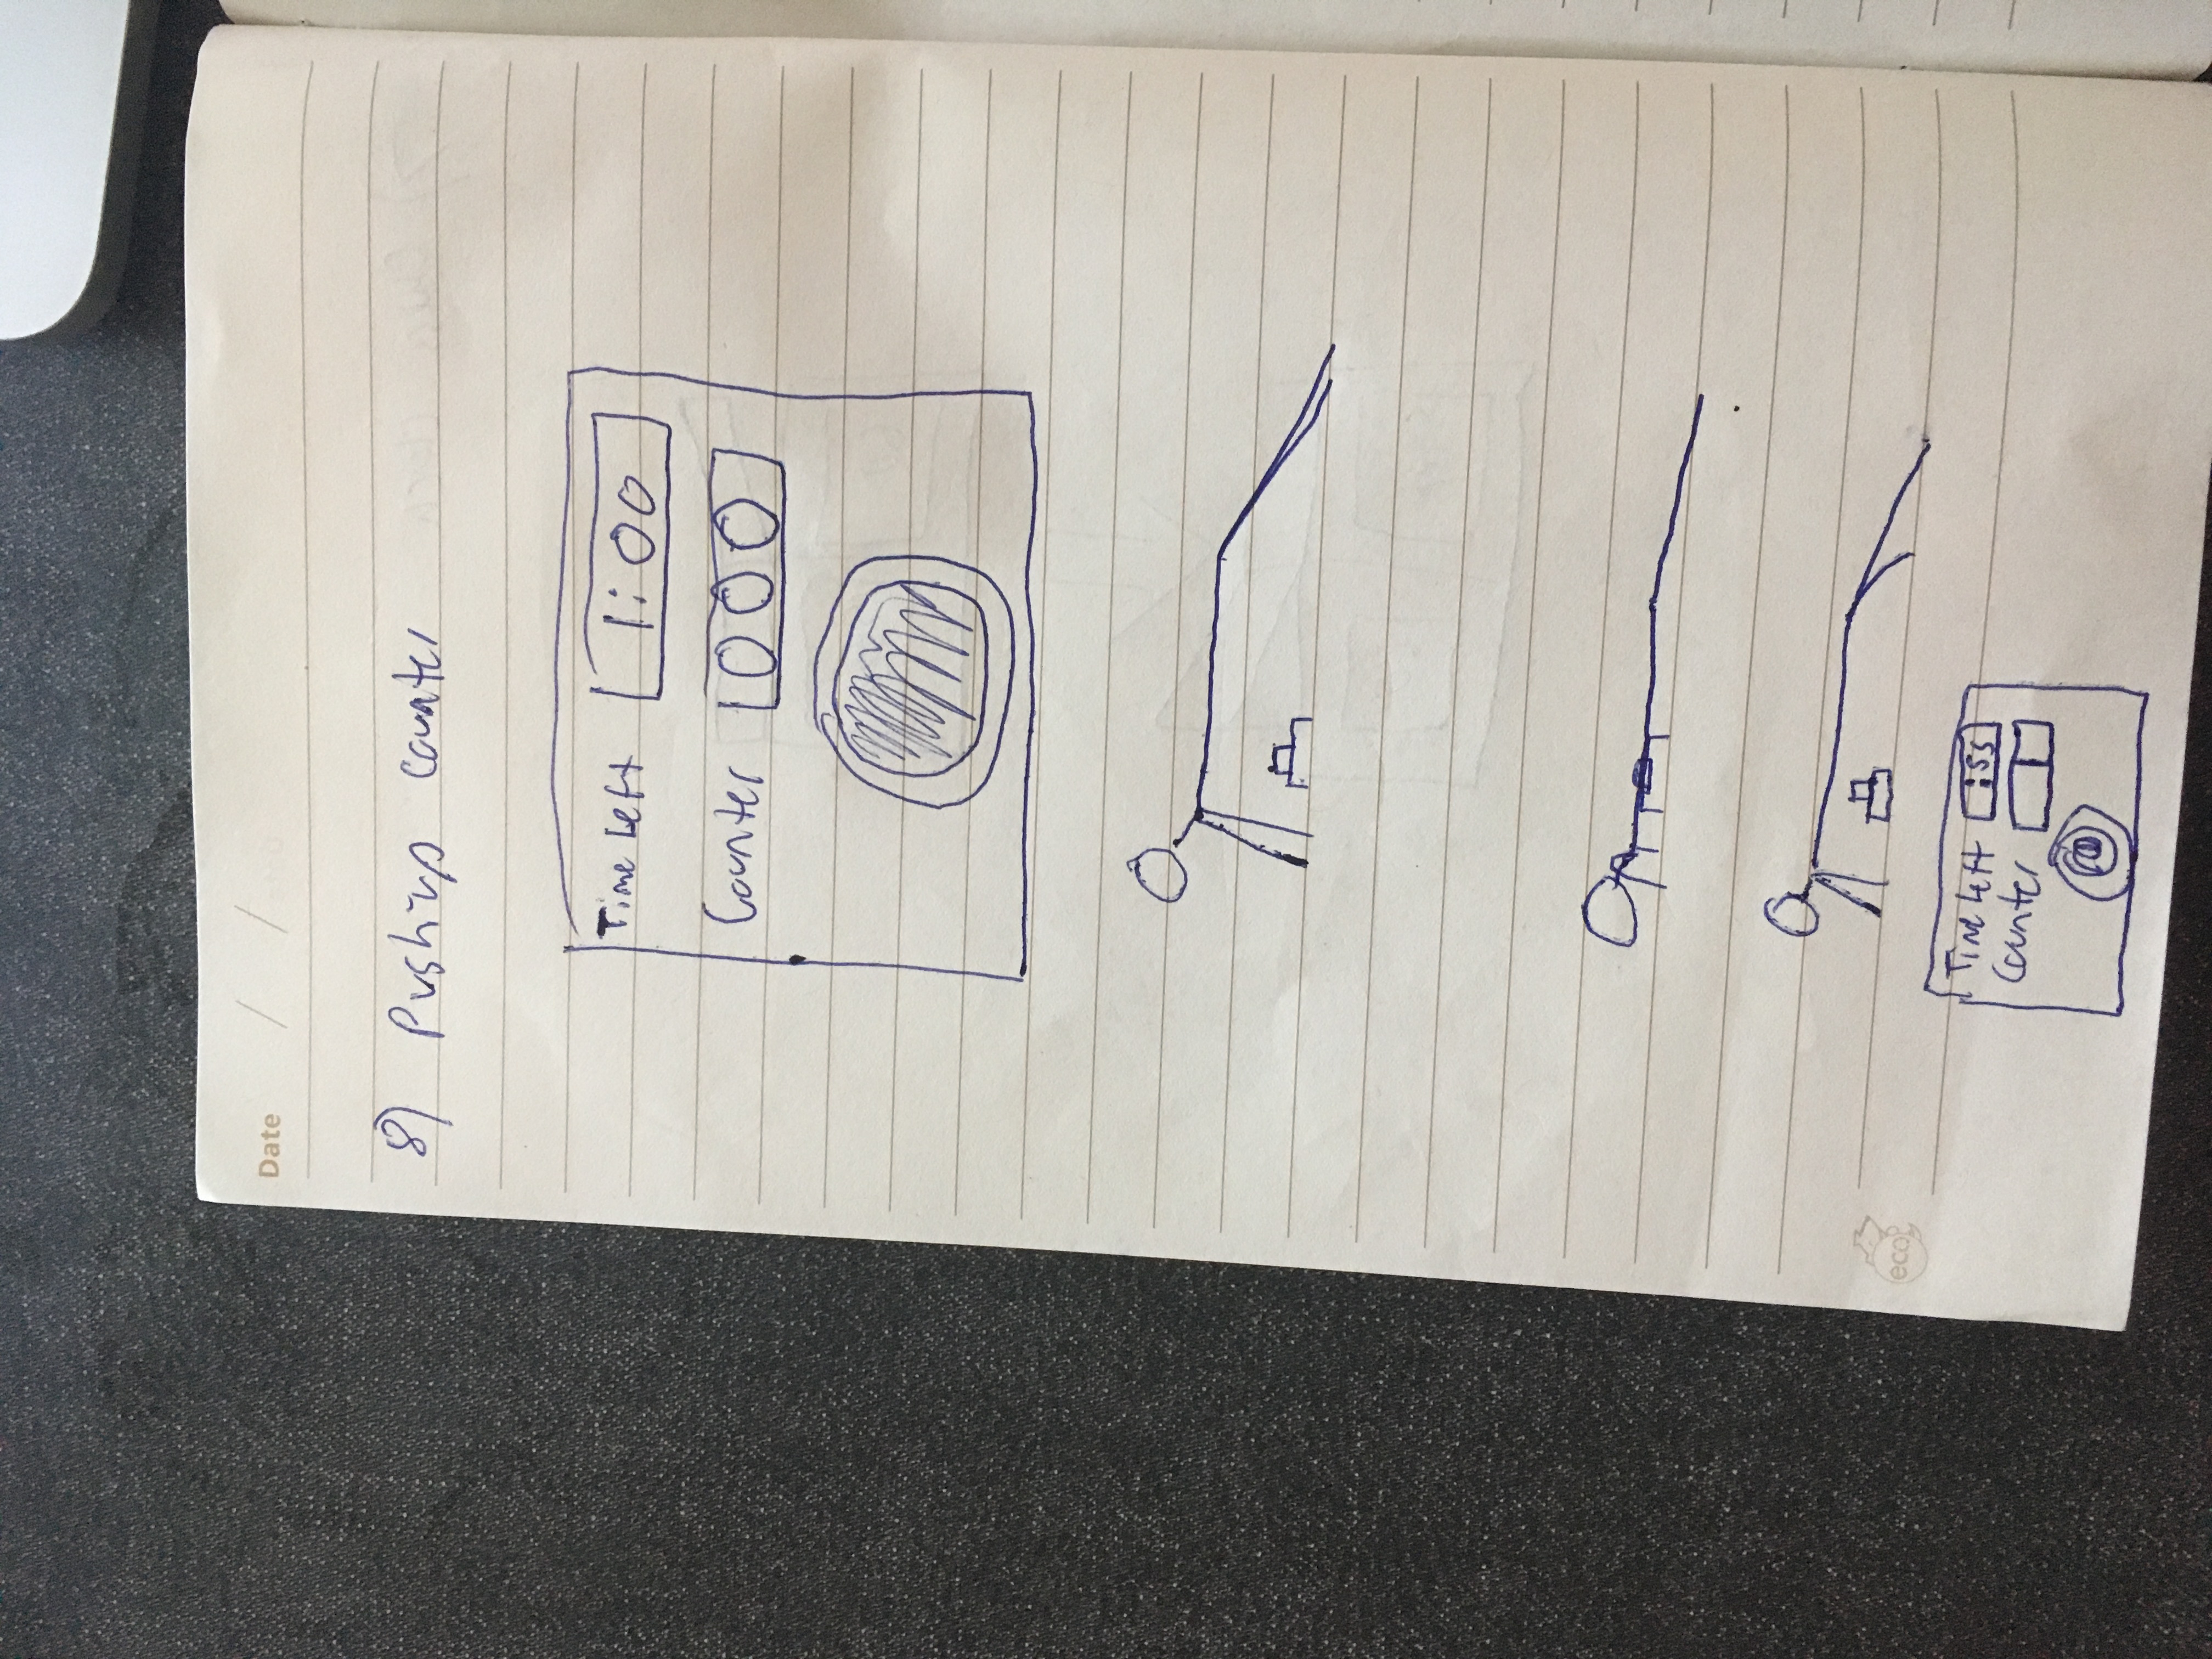 Date / /
8) Pushups counter
Time Left 1:00
Counter 000
eco
Time Left :55
Counter 1